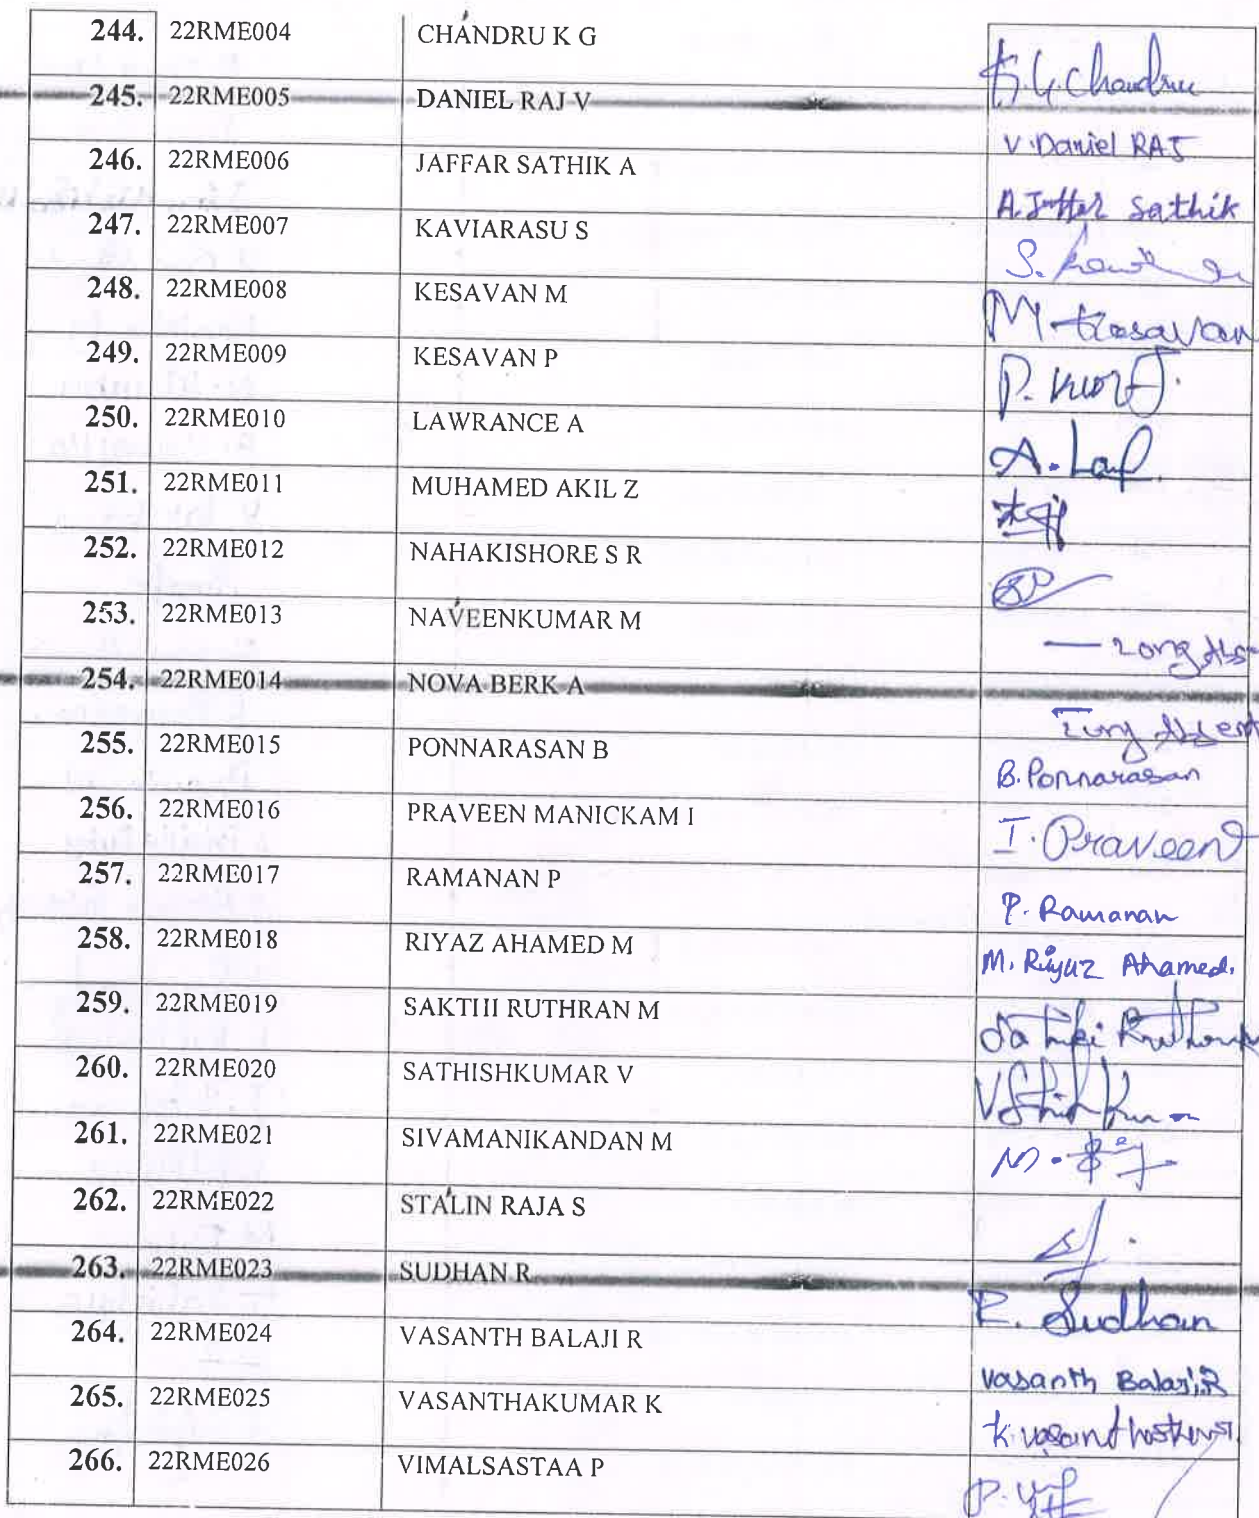 244. 22RME004 CHANDRU K G K.G.Chandru
245. 22RME005 DANIEL RAJ V V.Daniel RAJ
246. 22RME006 JAFFAR SATHIK A A.Jaffar Sathik
247. 22RME007 KAVIARASU S S.
248. 22RME008 KESAVAN M M.Kesavan
249. 22RME009 KESAVAN P P.
250. 22RME010 LAWRANCE A A.
251. 22RME011 MUHAMED AKIL Z
252. 22RME012 NAHAKISHORE S R
253. 22RME013 NAVEENKUMAR M — Long Abs
254. 22RME014 NOVA BERK A Long Absent
255. 22RME015 PONNARASAN B B.Ponnarasan
256. 22RME016 PRAVEEN MANICKAM I I.Praveen
257. 22RME017 RAMANAN P P.Ramanan
258. 22RME018 RIYAZ AHAMED M M.Riyaz Ahamed.
259. 22RME019 SAKTHI RUTHRAN M
260. 22RME020 SATHISHKUMAR V
261. 22RME021 SIVAMANIKANDAN M M.
262. 22RME022 STALIN RAJA S
263. 22RME023 SUDHAN R R.Sudhan
264. 22RME024 VASANTH BALAJI R Vasanth Balaji.R
265. 22RME025 VASANTHAKUMAR K
266. 22RME026 VIMALSASTAA P P.